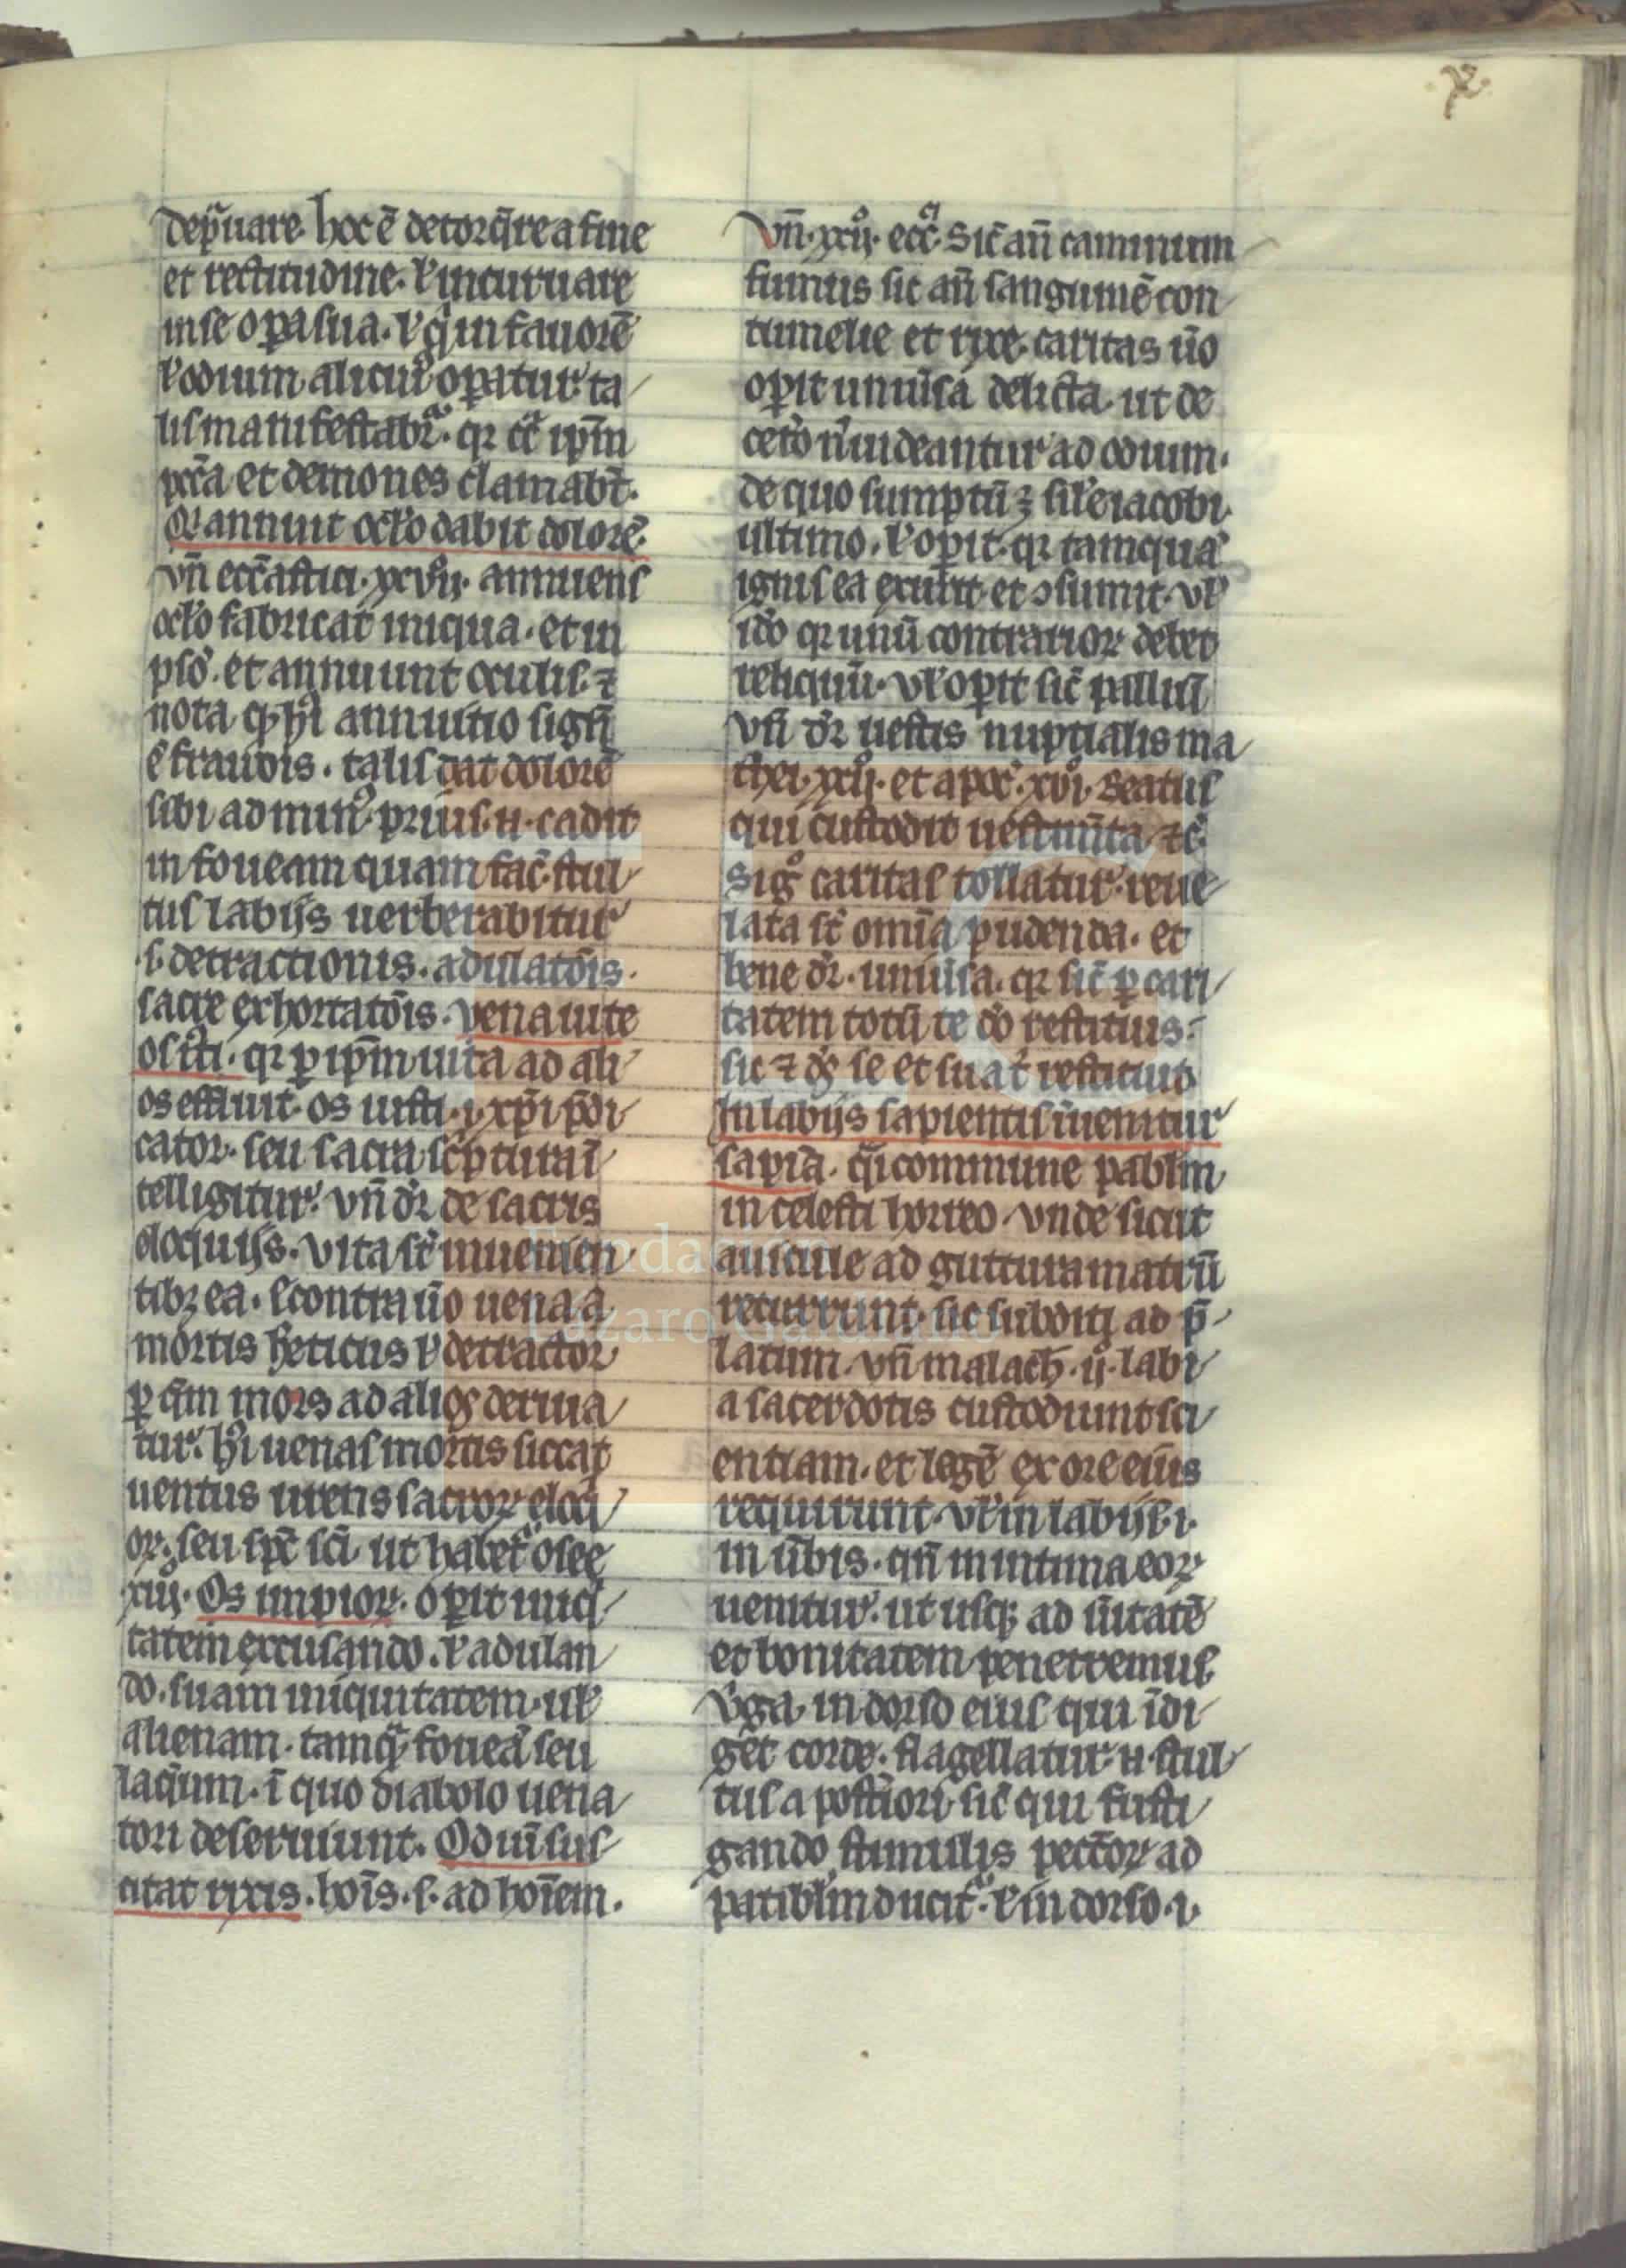 depͣuare. hoc ē detorq̄re a fine
et rectitudine. ł incuruare
in se opa sua. ł q̇ in fauorē
ł odium alicuiꝰ opatur. ta
lis manifestabr̄. qꝛ cͣ ip̄m
pcc̄a et demones clamabt̄.
Qͥ annuit oc̄lo dabit dolorē.
vn̄ ecc̄astici. xxvij. annuens
oc̄lo fabricat iniqua. et in
psō. et annuunt oculis. ⁊
nota ꝙ hͥ annuitio signū
ē fraudis. talis dat dolorē
sibi ad minꝰ. priꝰ .n. cadit
in foueam quam fac̄. stul
tus labijs uerberabitur
.s. detractionis. adulatōis.
sacre exhortatōis. vena uite
os iusti. qꝛ ꝑ ip̄m uita ad ali
os effluit. os iusti .i. xp̄i p̄di
cator. seu sacra sc̄ptura ī
telligitur. vn̄ dr̄ de sacris
eloquijs. vita st̄ inuenien
tibꝫ ea. econtra ūo uena
mortis h̄eticus ł detractor
ꝑ q̄m mors ad alios deriua
tur. hͥ uenas mortis siccat
uentus urens sacroꝝ eloq
oꝝ. seu sp̄c sc̄i ut habet̄ osee
xiij. Os impioꝝ. opit iniq
tatem excusando. ł adulan
do. suam iniquitatem. ul̄
alienam. tamqͣ foueā seu
laq̄um. ī quo diabolo uena
tori deseruiunt. Odiū sus
citat rixis. hoīs .s. ad hoīem.
vn̄. xxij. ecc̄. Sic̄ an̄ caminum
fumus sic an̄ sanguinē con
tumelie et rixe. caritas ūo
opit uniūsa delicta. ut de
cetͦo n̄ uideantur ad odium.
de quo sumptū ⁊ sil̄e iacobi
ultimo. ł opit. qꝛ tamquā
ignis ea exurit et ꝯsumit. vł
iđo qꝛ unū contrarioꝝ delet
reliquū. vł opit sic̄ palliū
vn̄ dr̄ uestis nuptialis ma
thei. xxij. et apoc̄. xvi. Beatus
qui custodit uestimīta ⁊c̄.
Sigͦ caritas tollatur. reue
lata st̄ omīa pudenda. et
bene dr̄. uniūsa. qꝛ sic̄ ꝑ cari
tatem totū te do restituis.
sic ⁊ ds̄ se et sua t̄ restituit
In labijs sapientis īuenitur
sapīa. q̄i commune pabl̄m
in celesti horreo. vnde sicut
auicule ad guttura matrū
recurrunt. sic subditi ad p̄
latum. vn̄ malach. ij. labi
a sacerdotis custodiunt sci
entiam. et legē ex ore eius
requirunt. vł in labijs .i.
in ūbis. qn̄ in intima eoꝝ
uenitur. ut usqꝫ ad ūitatē
et bonitatem penetremus.
V̄ga in dorso eius qui īdi
get corde. flagellatur .n. stul
tus a post̄iori. sic̄ qui fusti
gando stimulis pecc̄oꝝ ad
patibl̄m ducit̄. ł in dorso .i.
Fundación
Lázaro Galdiano